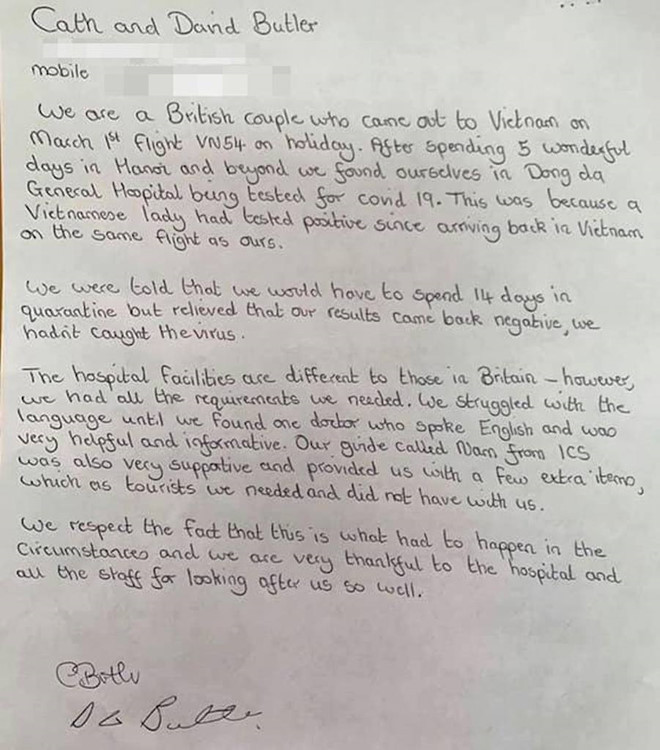 Cath and David Butler
mobile
We are a British couple who came out to Vietnam on
March 1st flight VN54 on holiday. After spending 5 wonderful
days in Hanoi and beyond we found ourselves in Dong da
General Hospital being tested for covid 19. This was because a
Vietnamese lady had tested positive since arriving back in Vietnam
on the same flight as ours.
We were told that we would have to spend 14 days in
quarantine but relieved that our results came back negative, we
hadn't caught the virus.
The hospital facilities are different to those in Britain – however,
we had all the requirements we needed. We struggled with the
language until we found one doctor who spoke English and was
very helpful and informative. Our guide called Nam from ICS
was also very supportive and provided us with a few extra items,
which as tourists we needed and did not have with us.
We respect the fact that this is what had to happen in the
circumstances and we are very thankful to the hospital and
all the staff for looking after us so well.